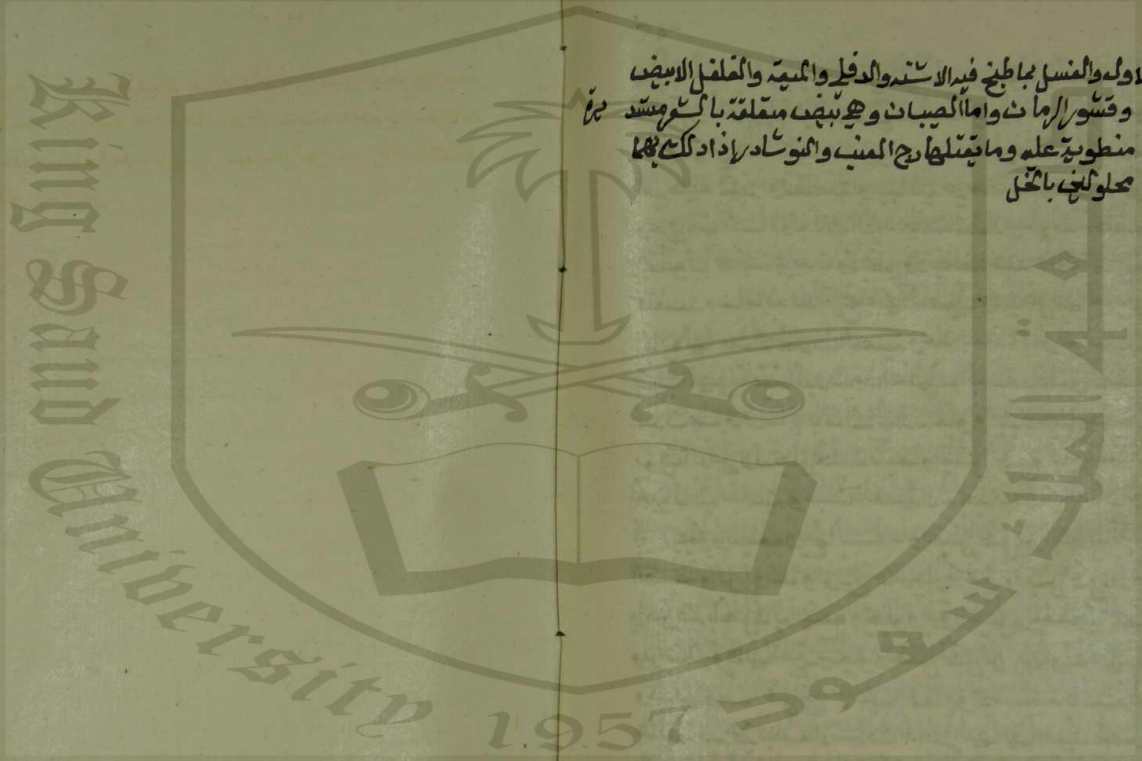 لاول والغسل بما طبخ فيه الاشنه والدفلي والميعة والفلفل الابيض
وقشور الرمان واما الصيبان وهي تبيض متعلقة بالشعر مستديرة
منطوية عليه وما يقتلها رج العنب والنوشادر اذا دلك بهما
محلولين بالخل
King Saud University
1957
جامعة الملك سعود